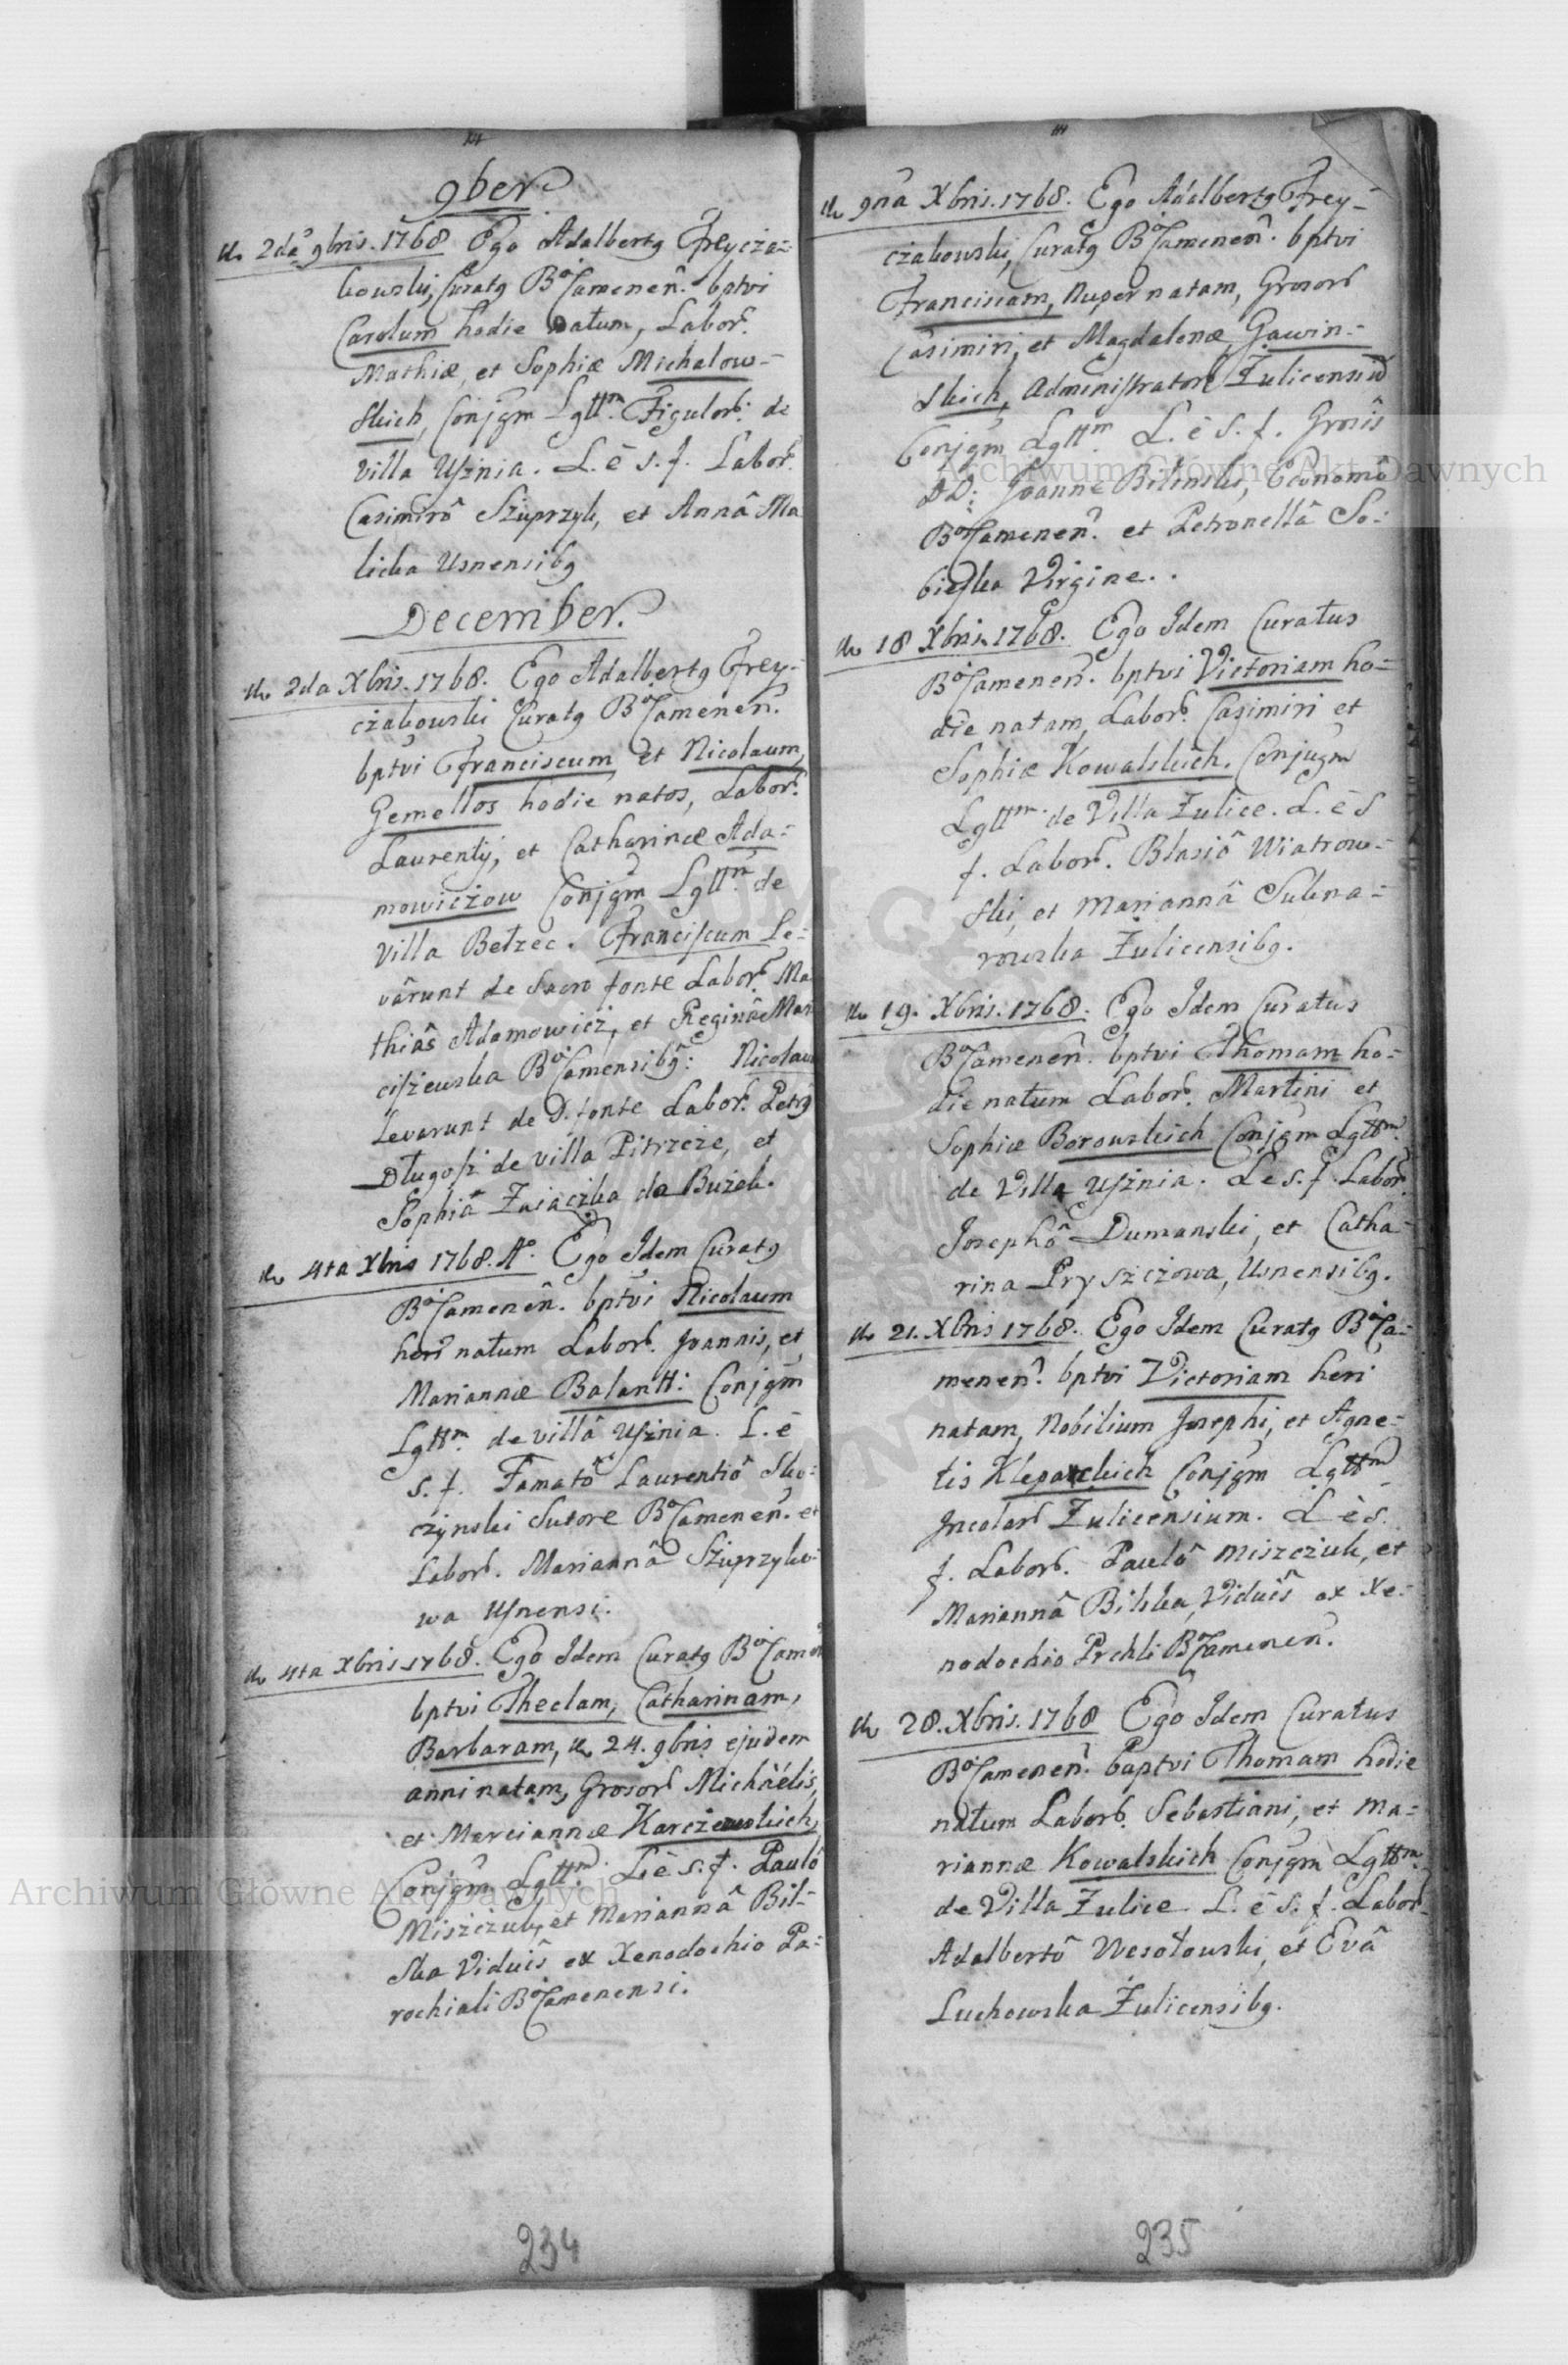 9ber
d. 2da 9bris. 1768 Ego Adalbertg Freycza=
kowski, Curatg BoCamenen. bptvi
Carolum hodie natum, Labor.
Mathiæ, et Sophiæ Michalow=
skich, Conjgm Lgttm. Figulor. de
villa Usznia. L. è s. f. Labor.
Casimirô Szuprzyk, et Annâ Ma
licka Usnensibg
December.
d. 2da Xbris. 1768. Ego Adalbertg Frey=
czakowski Curatg BoCamenen.
bptvi Franciscum et Nicolaum,
Gemellos hodie natos, Labor.
Laurentij, et Catharinæ Ada=
mowiczow Conjgm Lgttm. de
villa Bełzec. Franciscum Le=
vârunt de Sacro fonte Labor. Ma
thiâs Adamowicz, et Reginâ Mar
ciszewska BoCamensibg: Nicolaum
Levarunt de S. fonte Labor. Petrg
Długosz de villa Pitrzcze, et
Sophiâ Zaiaczka de Buzek.
d. 4ta Xbris 1768. Ao. Ego Idem Curatg
BoCamenen. bptvi Nicolaum
heri natum Labor. Joannis, et
Mariannæ Balantt: Conjgm
Lgttm. de villâ Usznia. L. è
s. f. Famatô Laurentiô Sko=
czynski Sutore BoCamenen. et
Labor. Mariannâ Szuprzyko=
wa Usnensi.
d. 4ta Xbris 1768. Ego Idem Curatg BoCamen
bptvi Theclam, Catharinam,
Barbaram, d. 24. 9bris ejusdem
anni natam, Grosor Michâélis,
et Marciannæ Karczewskich,
Conjgm Lgttm. L è s. f. Paulô
Miszczuk, et Mariannâ Bil=
ska Viduis ex Xenodochio Pa=
rochiali BoCamenensi.
234
d. 9na Xbris. 1768. Ego Adalbertg Frey=
czakowski, Curatg BoCamenen. bptvi
Franciscam, nuper natam, Grosor
Casimiri, et Magdalenæ Gawin=
skich, Administrator Zulicensium
Conjgm Lgttm L. è S. f. Grosis
DD: Joanne Bilinski, Economô
BoCamenen. et Petronellâ So=
bieska Virgine..
d. 18 Xbris. 1768. Ego Idem Curatus
BoCamenen. bptvi Victoriam ho=
die natam, Labor. Casimiri et
Sophiæ Kowalskich. Conjugm
Lgttm. de Villa Zulice. L. è S
f. Labor. Blasiô Wiatrow=
ski, et Mariannâ Sukna=
rowska Zulicensibg.
d. 19. Xbris. 1768. Ego Idem Curatus
BoCamenen. bptvi Thomam ho=
die natum Labor. Martini et
Sophiæ Borowskich Conjgm Lgttm.
de Villa Usznia. L è s. f. Labor.
Josephô Dumanski, et Catha=
rina Pryszczowa, Usnensibg.
d. 21. Xbris 1768. Ego Idem Curatg BoCa=
menen. bptvi Victoriam heri
natam, Nobilium Josephi, et Agne=
tis Kleparskich Conjgm Lgttm
Incolar Zulicensium. L è s.
f. Labor. Paulô Miszczuk, et
Mariannâ Bilska, Viduis ex Xe=
nodochio Prchli BoCamenen.
d. 28. Xbris. 1768 Ego Idem Curatus
BoCamenen. baptvi Thomam hodie
natum Labor. Sebastiani, et Ma=
riannæ Kowalskich Conjgm Lgttm.
de Villa Zulice L. è s. f. Labor.
Adalbertô Wesołowski, et Evâ
Luchowska Zulicensibg.
235
Archiwum Główne Akt Dawnych
Archiwum Główne Akt Dawnych